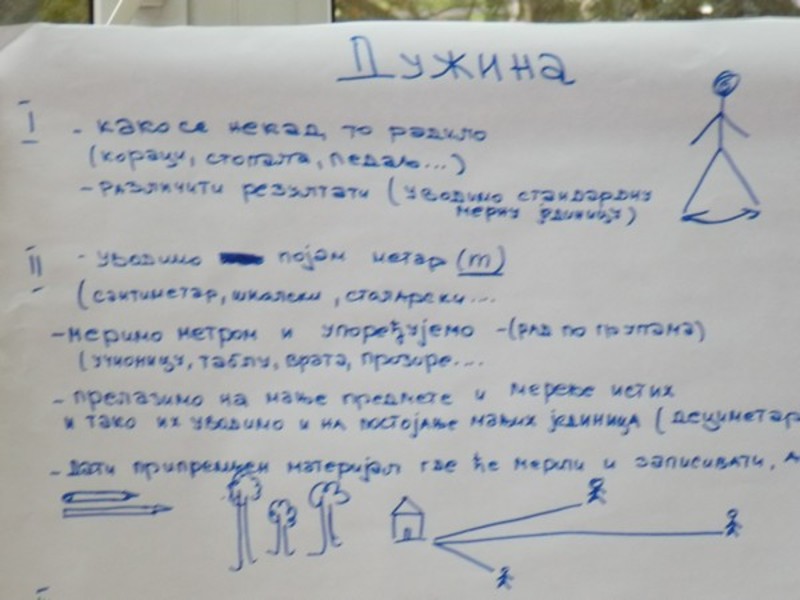 Дужина
I - како се некад то радило
(кораци, стопала, педаљ...)
- различити резултати (уводимо стандардну
мерну јединицу)
II - уводимо појам метар (m)
(сантиметар, школски, столарски...
- меримо метром и упоређујемо - (рад по групама)
(учионицу, таблу, врата, прозоре....
- прелазимо на мање предмете и мерење истих
и тако их уводимо и на постојање мањих јединица (дециметар
- дати припремљен материјал где ће мерити и записивати, а